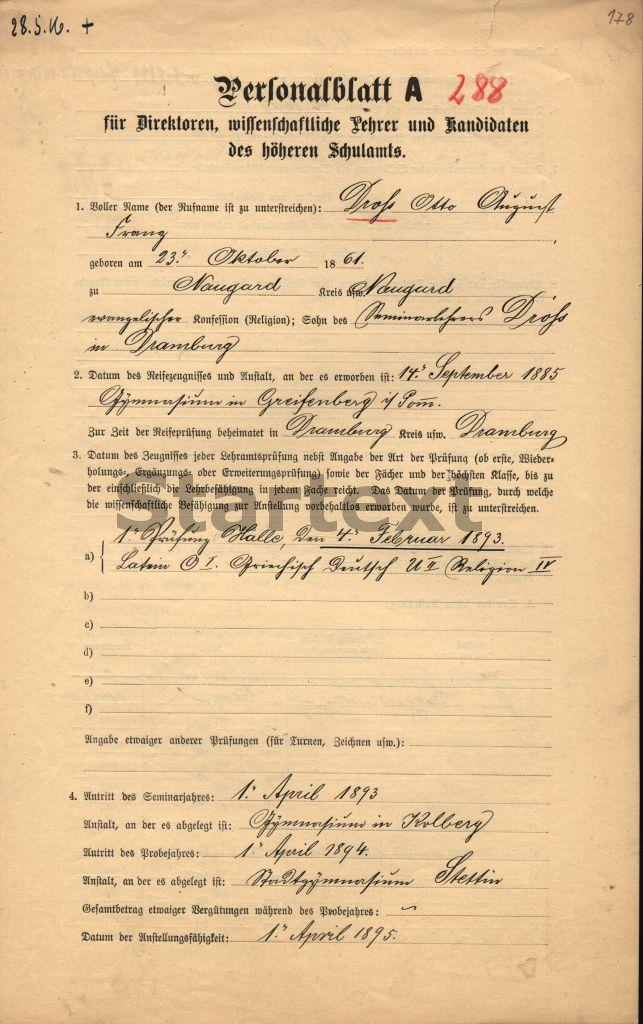 28.5.16. +
178
Personalblatt A 288
für Direktoren, wissenschaftliche Lehrer und Kandidaten
des höheren Schulamts.
1. Voller Name (der Rufname ist zu unterstreichen): Droß Otto August
Franz
geboren am 23. Oktober 1861.
zu Naugard Kreis usw. Naugard
evangelischer Konfession (Religion); Sohn des Seminarlehrers Droß
in Dramburg
2. Datum des Reifezeugnisses und Anstalt, an der es erworben ist: 14. September 1885
Gymnasium in Greifenberg i/Pom.
Zur Zeit der Reifeprüfung beheimatet in Dramburg Kreis usw. Dramburg
3. Datum des Zeugnisses jeder Lehramtsprüfung nebst Angabe der Art der Prüfung (ob erste, Wieder-
holungs-, Ergänzungs- oder Erweiterungsprüfung) sowie der Fächer und der höchsten Klasse, bis zu
der einschließlich die Lehrbefähigung in jedem Fache reicht. Das Datum der Prüfung, durch welche
die wissenschaftliche Befähigung zur Anstellung vorbehaltlos erworben wurde, ist zu unterstreichen.
Startext
1. Prüfung Halle, den 4. Februar 1893.
a) Latein O I. Griechisch Deutsch U II Religion IV
b)
c)
d)
e)
f)
Angabe etwaiger anderer Prüfungen (für Turnen, Zeichnen usw.):
4. Antritt des Seminarjahres: 1. April 1893
Anstalt, an der es abgelegt ist: Gymnasium in Kolberg
Antritt des Probejahres: 1. April 1894.
Anstalt, an der es abgelegt ist: Stadtgymnasium Stettin
Gesamtbetrag etwaiger Vergütungen während des Probejahres: –
Datum der Anstellungsfähigkeit: 1. April 1895.